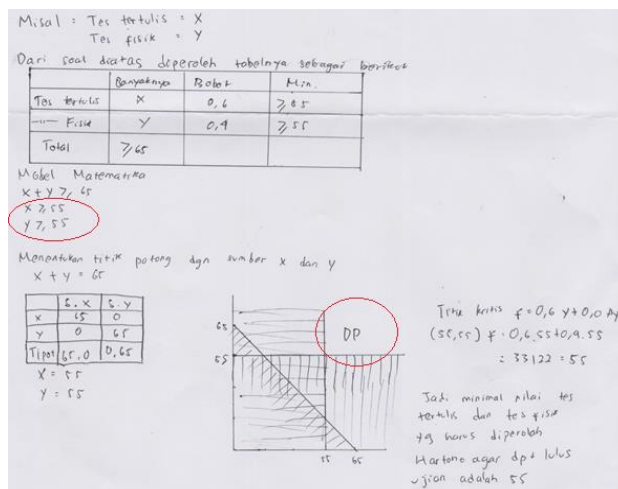 Misal : Tes tertulis = X
Tes fisik = Y
Dari soal diatas diperoleh tabelnya sebagai berikut
Banyaknya Bobot Min.
Tes tertulis X 0,6 ≥ 55
Fisik Y 0,4 ≥ 55
Total ≥ 65
Model Matematika
X + Y ≥ 65
X ≥ 55
Y ≥ 55
Menentukan titik potong dgn sumber x dan y
X + Y = 65
S.X S.Y
X 65 0
Y 0 65
Tipot 65.0 0,65
X = 55
Y = 55
65
55
DP
55 65
Titik kritis f = 0,6
(55,55) f = 0,6.55+0,4.55
= 55
Jadi minimal nilai tes
tertulis dan tes fisik
yg harus diperoleh
Hartono agar dpt lulus
ujian adalah 55